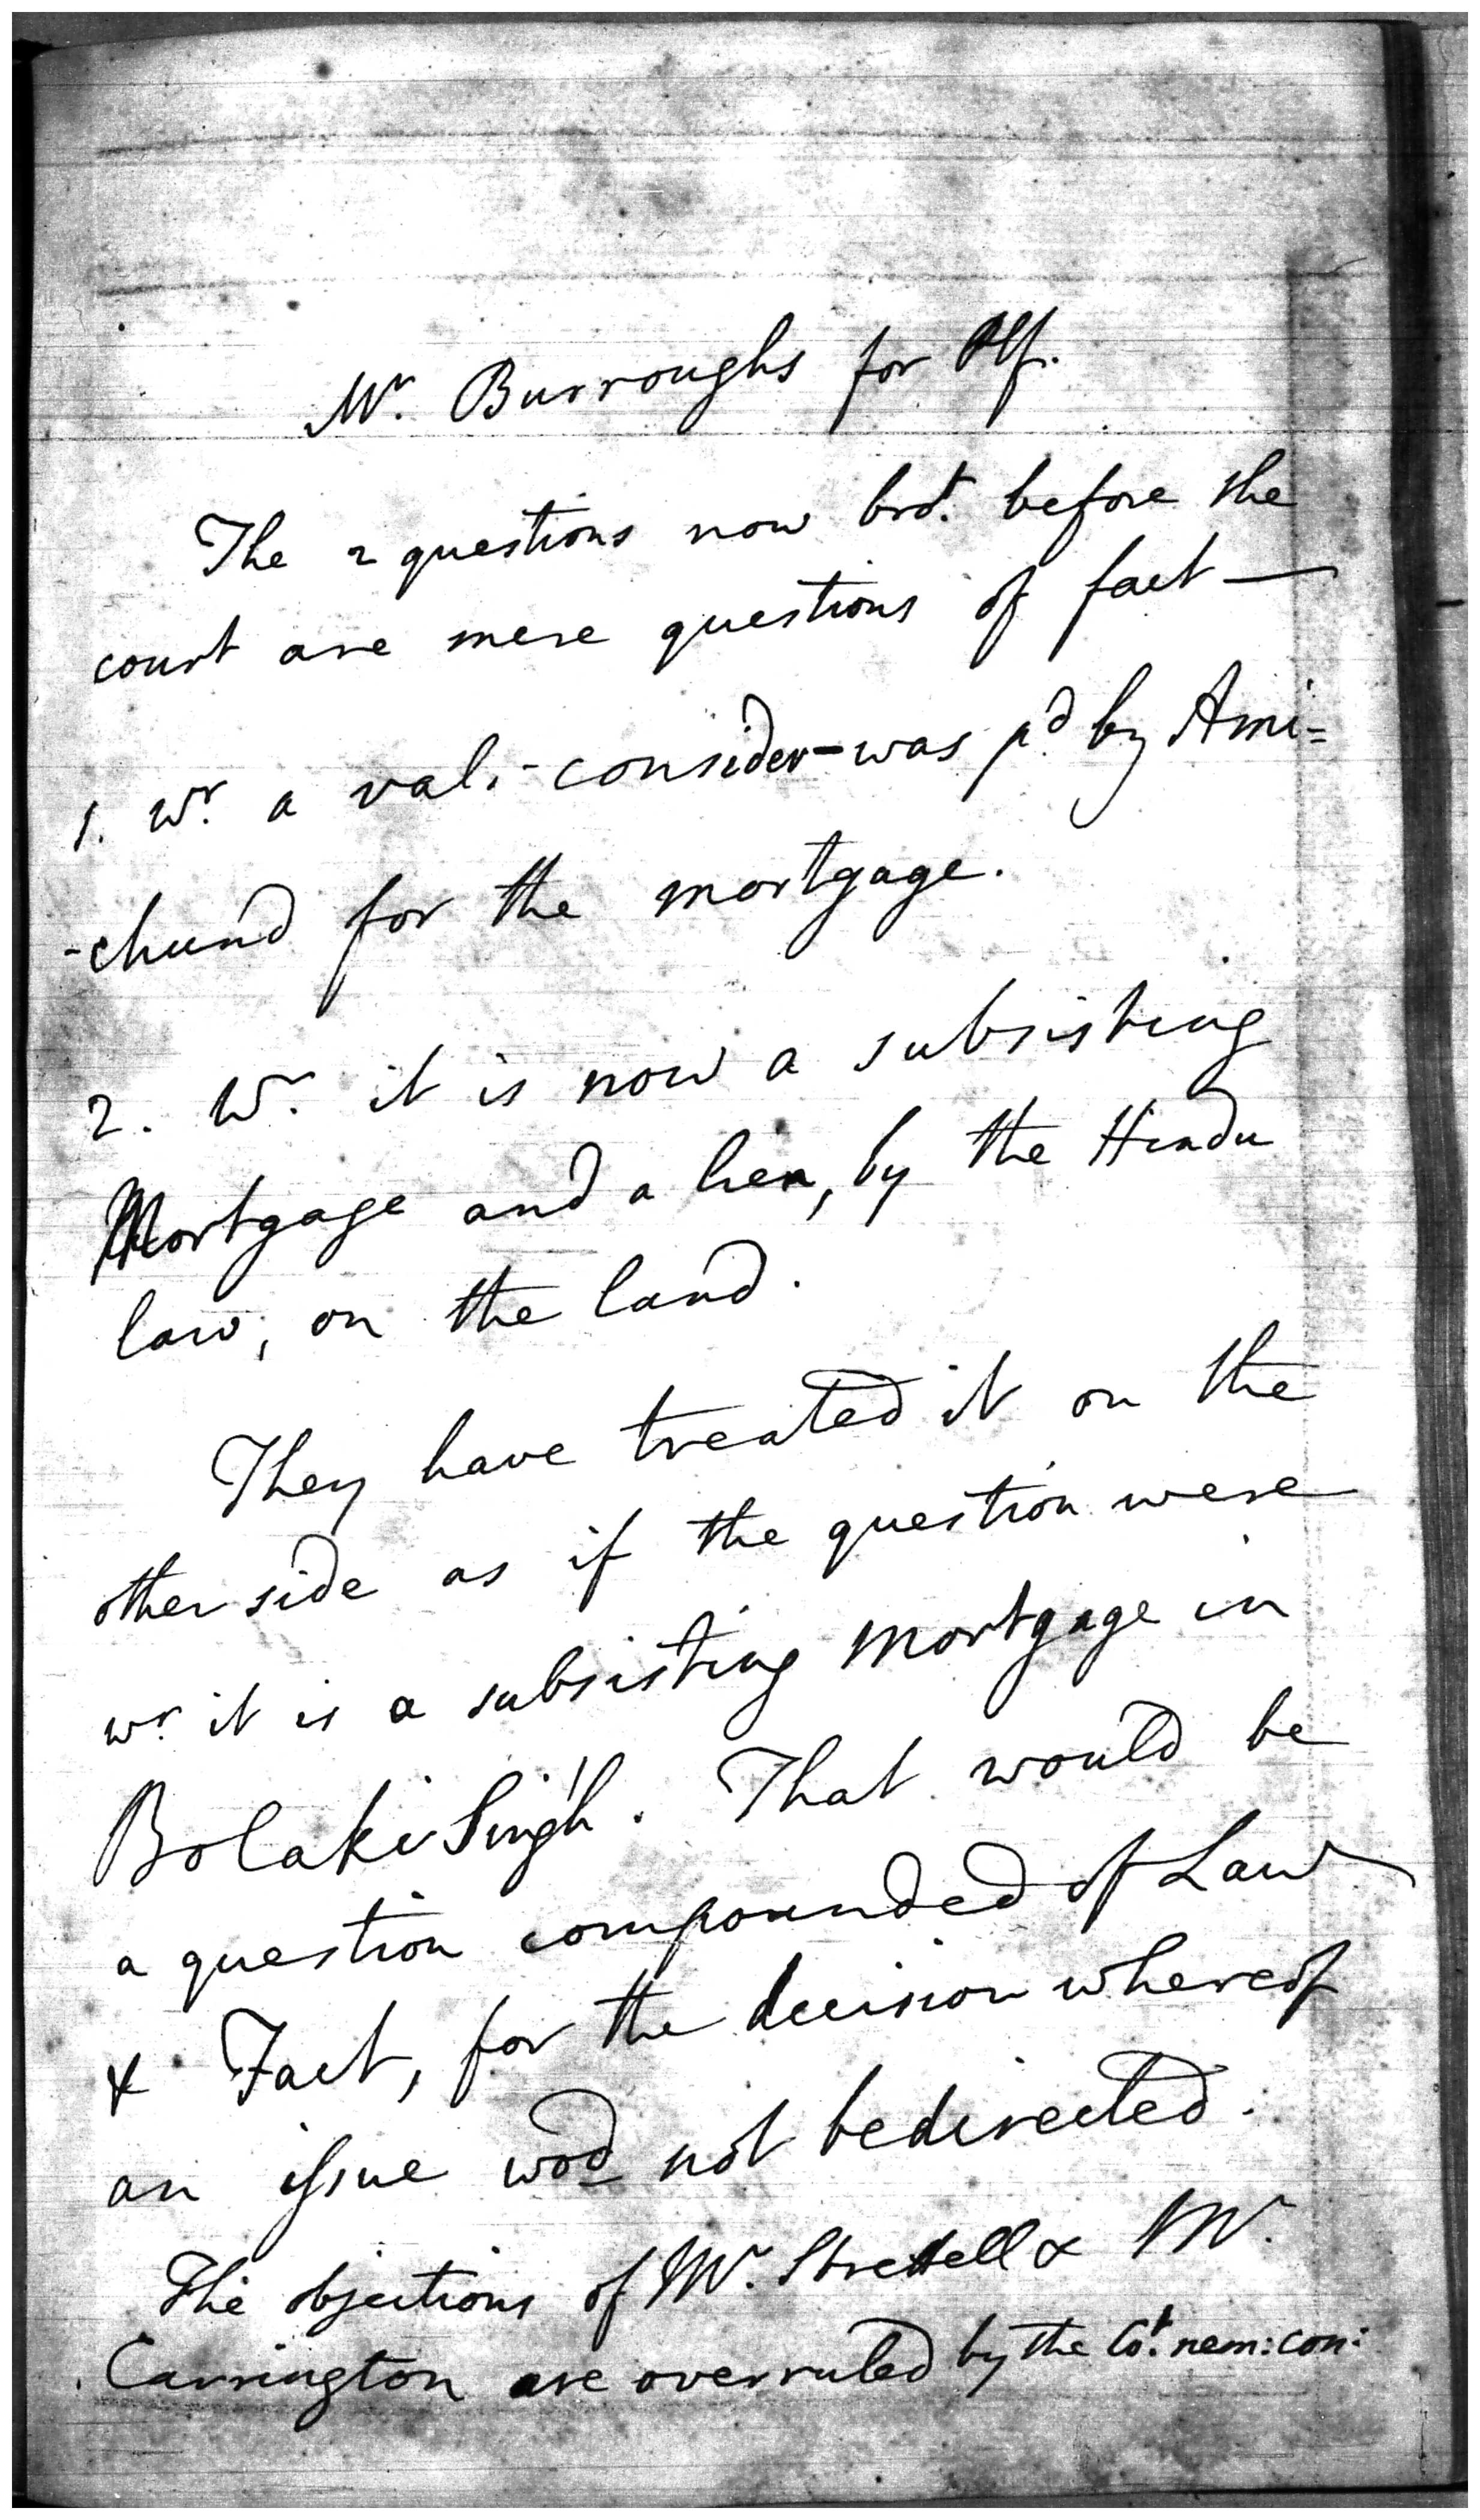 Mr. Burroughs for Plf.
The 2 questions now brot. before the
court are mere questions of fact —
1. Wr. a val:- consider- was pd by Ami=
-chund for the mortgage.
2. Wr. it is now a subsisting
Mortgage and a lien, by the Hindu
law, on the land.
They have treated it on the
other side as if the question were
wr. it is a subsisting mortgage in
Bolaki Singh. That would be
a question compounded of Law
& Fact, for the decision whereof
an issue wod not be directed.
The objections of Mr. Strettell & Mr.
Carrington are overruled by the Cot. nem: con: